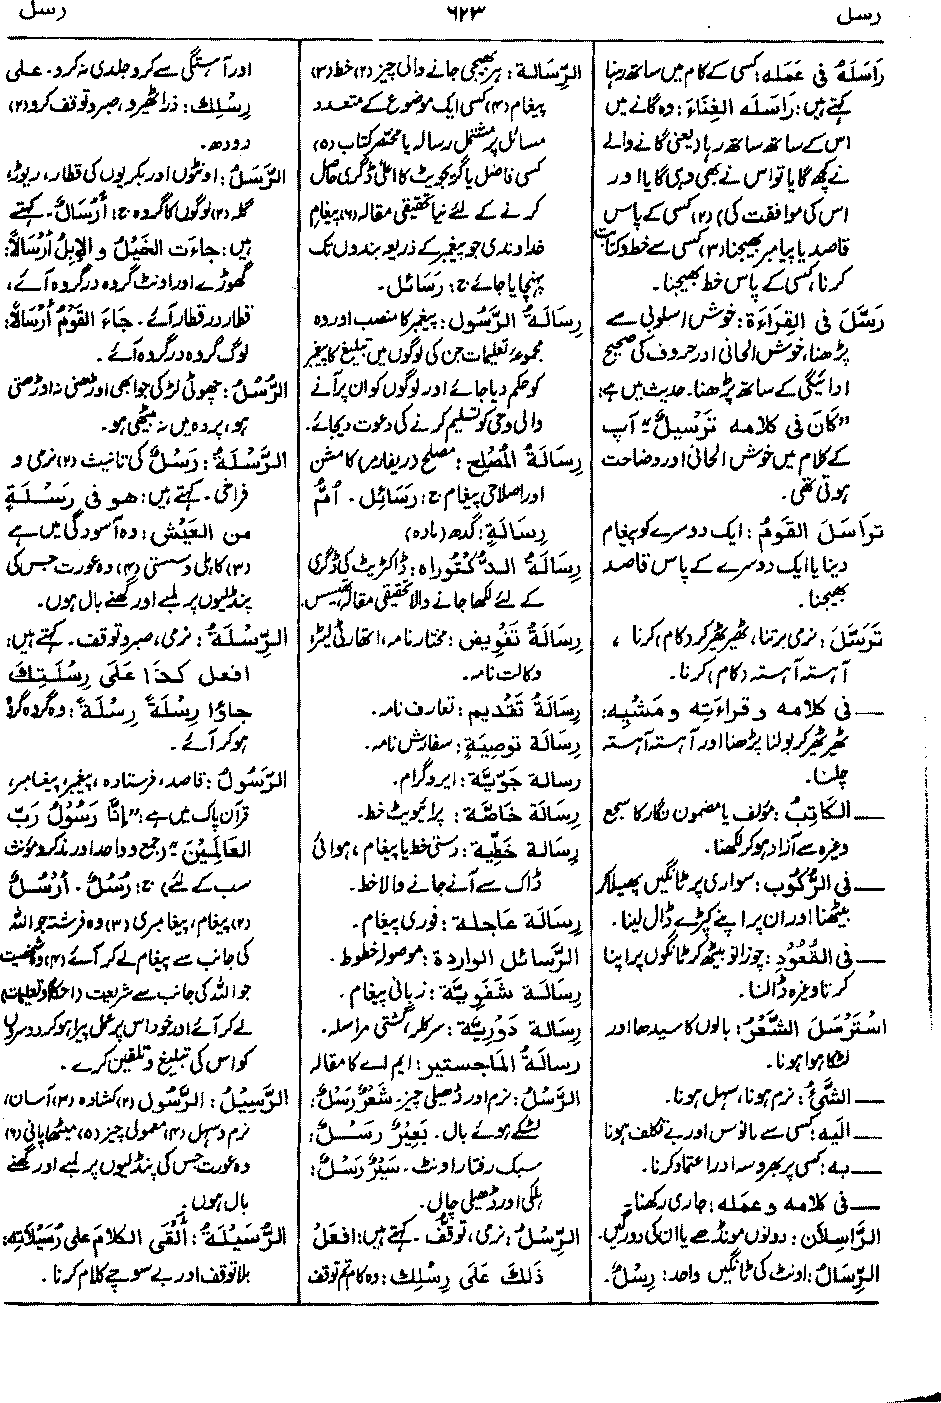 رسل
۶۲۳
رسل
رَاسَلَهُ فی عَمَلِه: کسی کے کام میں ساتھ رہنا
کہتے ہیں: رَاسَلَه الغِنَاءَ: وہ گانے میں
اس کے ساتھ ساتھ رہا (یعنی گانے والے
نے کچھ گایا تو اس نے بھی وہی گایا اور
اس کی موافقت کی) (۲) کسی کے پاس
قاصد یا پیامبر بھیجنا (۳) کسی سے خط و کتابت
کرنا، کسی کے پاس خط بھیجنا۔
رَسَّلَ فی القِرَاءَة: خوش اسلوبی سے
پڑھنا، خوش الحانی اور حروف کی صحیح
ادائیگی کے ساتھ پڑھنا۔ حدیث میں ہے:
”کَانَ فی کلامه تَرْسِیلٌ“ آپ
کے کلام میں خوش الحانی اور وضاحت
ہوتی تھی۔
تَراسَلَ القَومُ: ایک دوسرے کو پیغام
دینا یا ایک دوسرے کے پاس قاصد
بھیجنا۔
تَرَسَّلَ: نرمی برتنا، ٹھیر ٹھیر کر (کام) کرنا،
آہستہ آہستہ (کام) کرنا۔
— فی کلامه و قراءَتِه و مَشْیِه:
ٹھیر ٹھیر کر بولنا پڑھنا اور آہستہ آہستہ
چلنا۔
— الکَاتِبُ: مؤلف یا مضمون نگار کا سجع
وغیرہ سے آزاد ہو کر لکھنا۔
— فی الرُّکُوب: سواری پر ٹانگیں پھیلا کر
بیٹھنا اور ان پر اپنے کپڑے ڈال لینا۔
— فی القُعُوْد: چوزانو بیٹھ کر ٹانگوں پر اپنا
کرتا وغیرہ ڈالنا۔
اسْتَرْسَلَ الشَّعْرُ: بالوں کا سیدھا اور
لٹکا ہوا ہونا۔
— الشَّیْءُ: نرم ہونا، سہل ہونا۔
— الَیه: کسی سے مانوس اور بے تکلف ہونا
— به: کسی پر بھروسہ اور اعتماد کرنا۔
— فی کلامه و عمله: جاری رکھنا۔
الرَّاسِلَان: دونوں مونڈھے یا ان کی دو رگیں۔
الرِّسَالُ: اونٹ کی ٹانگیں واحد: رِسْلٌ۔
الرِّسَالَة: ہر بھیجی جانے والی چیز (۲) خط (۳)
پیغام (۴) کسی ایک موضوع کے متعدد
مسائل پر مشتمل رسالہ یا مختصر کتاب (۵)
کسی فاضل یا گریجویٹ کا اعلیٰ ڈگری حاصل
کرنے کے لئے نیا تحقیقی مقالہ (۶) پیغام
خداوندی جو پیغمبر کے ذریعہ بندوں تک
پہنچایا جائے ج: رَسَائِل۔
رِسَالَةُ الرَّسُول: پیغمبر کا منصب اور وہ
مجموعۂ تعلیمات جن کی لوگوں میں تبلیغ کا پیغمبر
کو حکم دیا جائے اور لوگوں کو ان پر آنے
والی وحی کو تسلیم کرنے کی دعوت دیجائے۔
رِسَالَةُ المُصْلِح: مصلح (ریفارمر) کا مشن
اور اصلاحی پیغام ج: رَسَائِل۔ اُمُّ
رِسَالَةٍ: گدھ (مادہ)
رِسَالَةُ الدُّکْتُوراه: ڈاکٹریٹ کی ڈگری
کے لئے لکھا جانے والا تحقیقی مقالہ، تھیسس۔
رِسَالَةُ تَفْوِیض: مختارنامہ، اتھارٹی لیٹر
وکالت نامہ۔
رِسَالَةُ تَقْدِیم: تعارف نامہ۔
رِسَالَة تَوصِیَةٍ: سفارش نامہ۔
رِسالة جَوِّیَّة: ایروگرام۔
رِسَالَة خَاصَّة: پرائیویٹ خط۔
رِسَالَة خَطِّیة: دستی خط یا پیغام، ہوائی
ڈاک سے آنے جانے والا خط۔
رِسَالَة عَاجِلَة: فوری پیغام۔
الرَّسَائل الوارِدة: موصولہ خطوط۔
رِسَالَة شَفَوِیَّة: زبانی پیغام۔
رِسَالَة دَوْرِیَّة: سرکلر، گشتی مراسلہ۔
رِسَالَةُ المَاجستیر: ایم اے کا مقالہ
الرَّسْلُ: نرم اور ڈھیلی چیز۔ شَعْرٌ رَسْلٌ:
لٹکے ہوئے بال۔ بَعِیْرٌ رَسْلٌ:
سبک رفتار اونٹ۔ سَیْرٌ رَسْلٌ:
ہلکی اور ڈھیلی چال۔
الرِّسْلُ: نرمی، توقف۔ کہتے ہیں: افْعَلْ
ذَلكَ عَلَی رِسْلِكَ: وہ کام تم توقف
اور آہستگی سے کرو جلدی نہ کرو۔ علی
رِسْلِك: ذرا ٹھیرو، صبر و توقف کرو (۲)
دودھ۔
الرَّسَلُ: اونٹوں اور بکریوں کی قطار، ریوڑ،
گلہ (۲) لوگوں کا گروہ ج: أَرْسَالٌ۔ کہتے
ہیں: جاءَت الخَیْلُ و الإبِلُ أرْسَالًا:
گھوڑے اور اونٹ گروہ در گروہ آئے،
قطار در قطار آئے۔ جَاءَ القَوْمُ أرْسَالًا:
لوگ گروہ در گروہ آئے۔
الرُّسُلُ: چھوٹی لڑکی جو ابھی اوڑھنی نہ اوڑھتی
ہو، پردہ میں نہ بیٹھی ہو۔
الرَّسْلَةُ: رَسْلٌ کی تانیث (۲) نرمی و
فراخی۔ کہتے ہیں: هو فی رَسْلَةٍ
من العَیْش: وہ آسودگی میں ہے
(۳) کاہلی و سستی (۴) وہ عورت جس کی
پنڈلیوں پر لمبے اور گھنے بال ہوں۔
الرِّسْلَةُ: نرمی، صبر و توقف۔ کہتے ہیں:
افعل کَذَا عَلَی رِسْلَتِكَ
جاؤا رِسْلَةً رِسْلَةً: وہ گروہ گروہ
ہو کر آئے۔
الرَّسُولُ: قاصد، فرستادہ، پیغمبر، پیغامبر،
قرآن پاک میں ہے: ”إنَّا رَسُوْلُ رَبِّ
العَالَمِیْنَ“ (جمع و واحد اور مذکر و مؤنث
سب کے لئے) ج: رُسُلٌ۔ أرْسُلٌ
(۲) پیغام، پیغامبری (۳) وہ فرشتہ جو اللہ
کی جانب سے پیغام لے کر آئے (۴) وہ شخصیت
جو اللہ کی جانب سے شریعت (احکام و تعلیمات)
لے کر آئے اور خود اس پر عمل پیرا ہو کر دوسروں
کو اس کی تبلیغ و تلقین کرے۔
الرَّسِیْلُ: الرَّسُول (۲) کشادہ (۳) آسان،
نرم و سہل (۴) معمولی چیز (۵) میٹھا پانی (۶)
وہ عورت جس کی پنڈلیوں پر لمبے اور گھنے
بال ہوں۔
الرُّسَیْلَةُ: أَلْقَی الکلامَ علی رُسَیْلَاتِه:
بلا توقف اور بے سوچے کلام کرنا۔